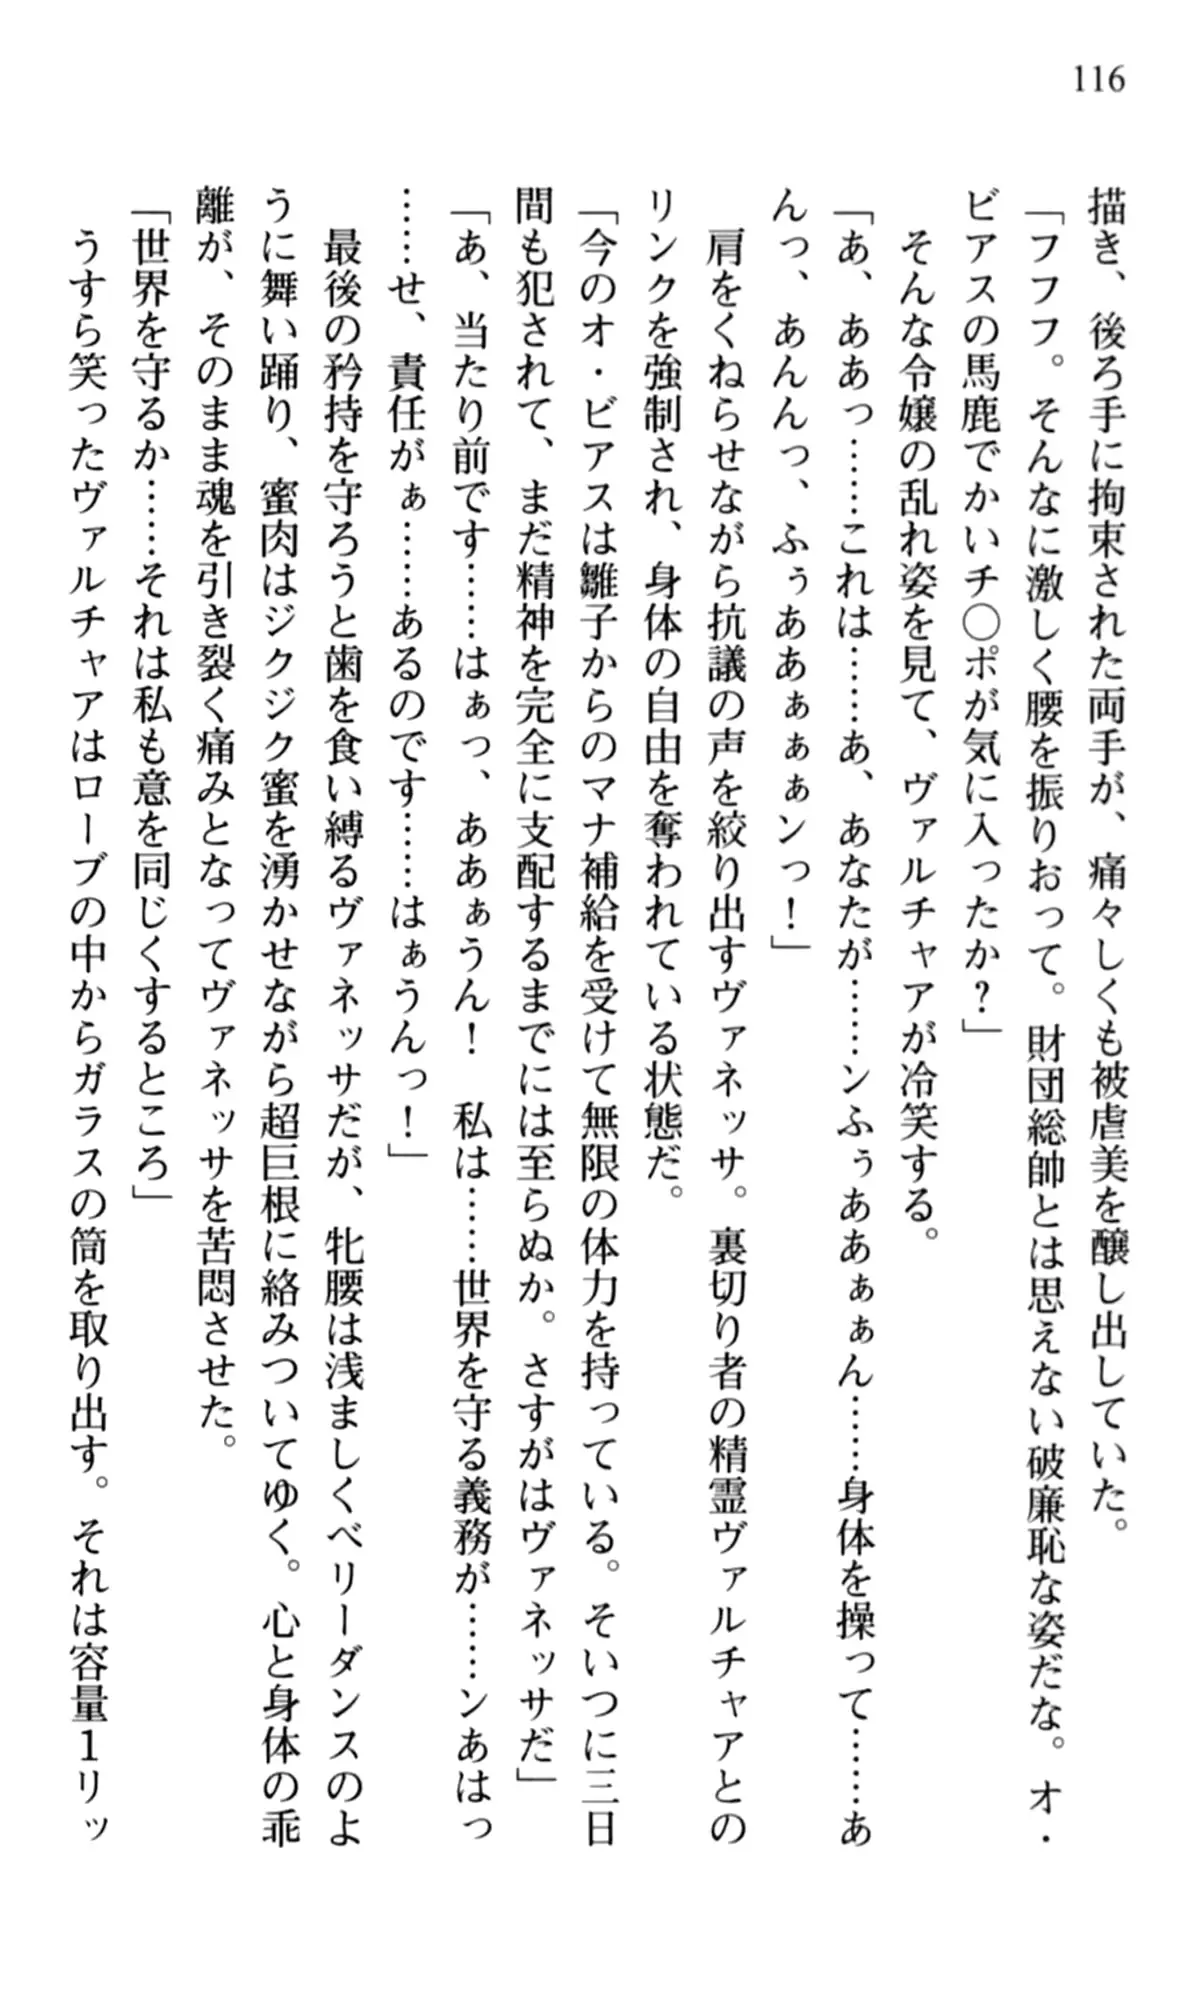 116
描き、後ろ手に拘束された両手が、痛々しくも被虐美を醸し出していた。
「フフフ。そんなに激しく腰を振りおって。財団総帥とは思えない破廉恥な姿だな。オ・
ビアスの馬鹿でかいチ◯ポが気に入ったか?」
そんな令嬢の乱れ姿を見て、ヴァルチャアが冷笑する。
「あ、ああっ……これは……あ、あなたが……ンふぅああぁぁん……身体を操って……あ
んっ、あんんっ、ふぅああぁぁぁンっ!」
肩をくねらせながら抗議の声を絞り出すヴァネッサ。裏切り者の精霊ヴァルチャアとの
リンクを強制され、身体の自由を奪われている状態だ。
「今のオ・ビアスは雛子からのマナ補給を受けて無限の体力を持っている。そいつに三日
間も犯されて、まだ精神を完全に支配するまでには至らぬか。さすがはヴァネッサだ」
「あ、当たり前です……はぁっ、ああぁうん! 私は……世界を守る義務が……ンあはっ
……せ、責任がぁ……あるのです……はぁうんっ!」
最後の矜持を守ろうと歯を食い縛るヴァネッサだが、牝腰は浅ましくベリーダンスのよ
うに舞い踊り、蜜肉はジクジク蜜を湧かせながら超巨根に絡みついてゆく。心と身体の乖
離が、そのまま魂を引き裂く痛みとなってヴァネッサを苦悶させた。
「世界を守るか……それは私も意を同じくするところ」
うすら笑ったヴァルチャアはローブの中からガラスの筒を取り出す。それは容量1リッ